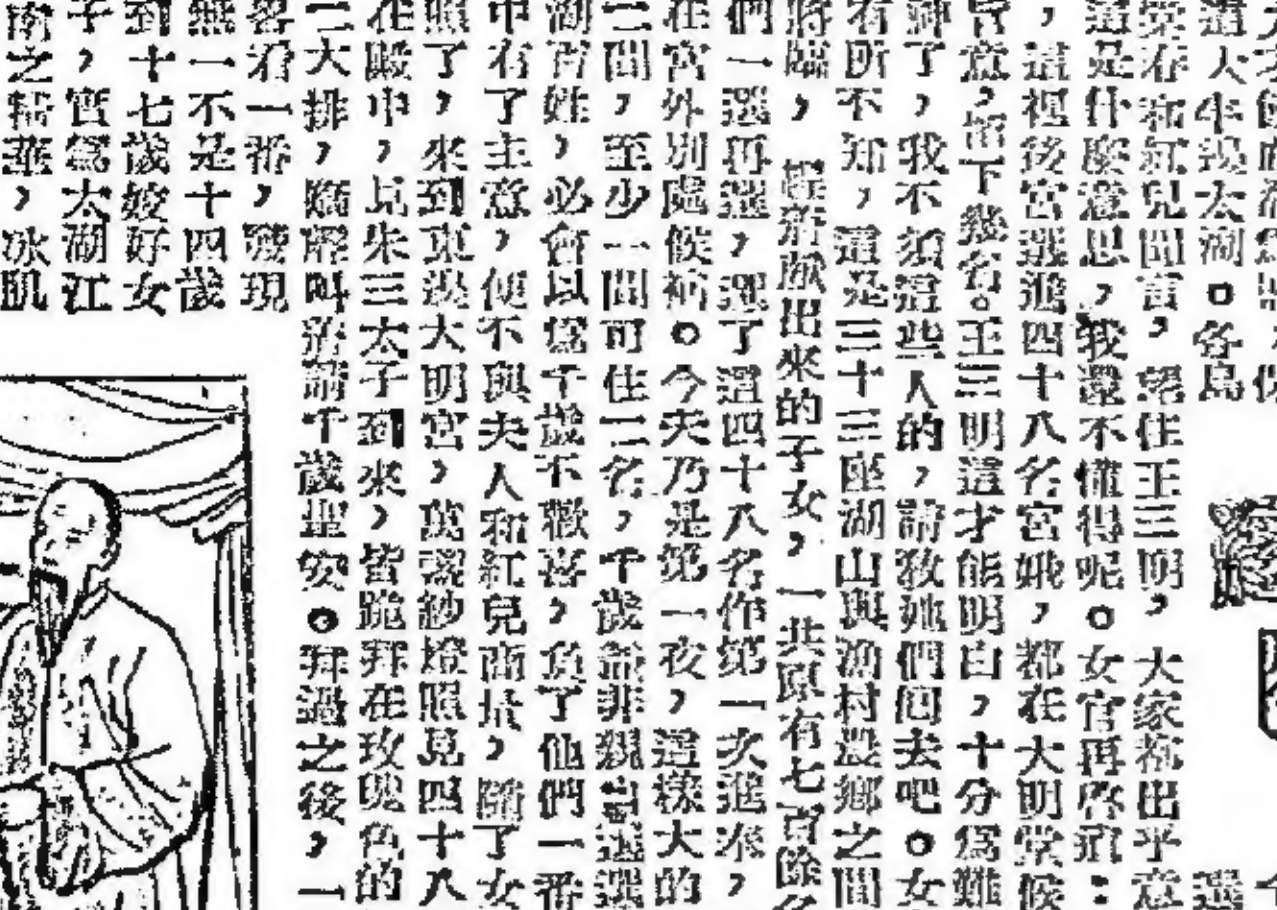 遣大半設太湖。各島
棠春和紅兒聞言，望住王三明，大家都出乎意
這是什麼意思，我還不懂得呢。女官再啓稟：
，這裡後宮選進四十八名宮娥，都在大明堂候
旨意，留下幾名。王三明這才能明白，十分爲難
了，我不須這些人的，請教她們回去吧。女
有所不知，這是三十三座湖山與漁村農鄉之間
將臨，獻出來的子女，一共原有七百餘名
們一選再選，選了這四十八名作第一次進奉，
在宮外別處候補。今天乃是第一夜，這樣大的
二間，至少一間可住二名，千歲爺非親自選選
湖百姓，必會以爲千歲不歡喜，負了他們一番
中有了主意，便不與夫人和紅兒商量，隨了女
照了，來到東漢大明宮，紗燈照見四十八
在殿中，見朱三太子到來，皆跪拜在玫瑰色的
二大排，嬌聲叫請千歲聖安。拜過之後，一
看一番，發現
無一不是十四歲
到十七歲姣好女
子，太湖江
南之精華，冰肌